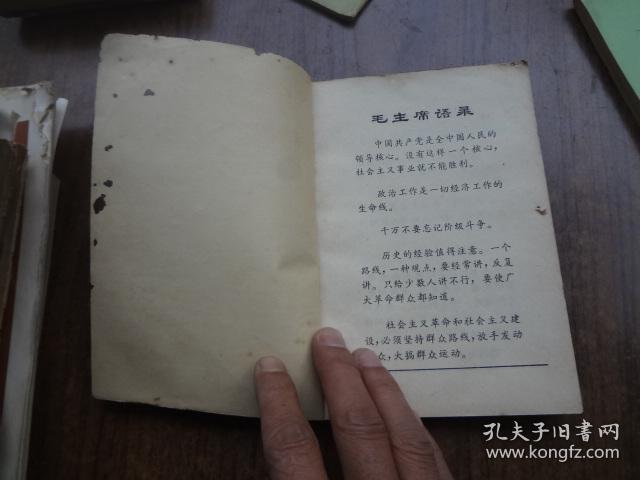 毛主席语录
中国共产党是全中国人民的
领导核心。没有这样一个核心,
社会主义事业就不能胜利。
政治工作是一切经济工作的
生命线。
千万不要忘记阶级斗争。
历史的经验值得注意。一个
路线,一种观点,要经常讲,反复
讲。只给少数人讲不行,要使广
大革命群众都知道。
社会主义革命和社会主义建
设,必须坚持群众路线,放手发动
众,大搞群众运动。
孔夫子旧书网
www.kongfz.com